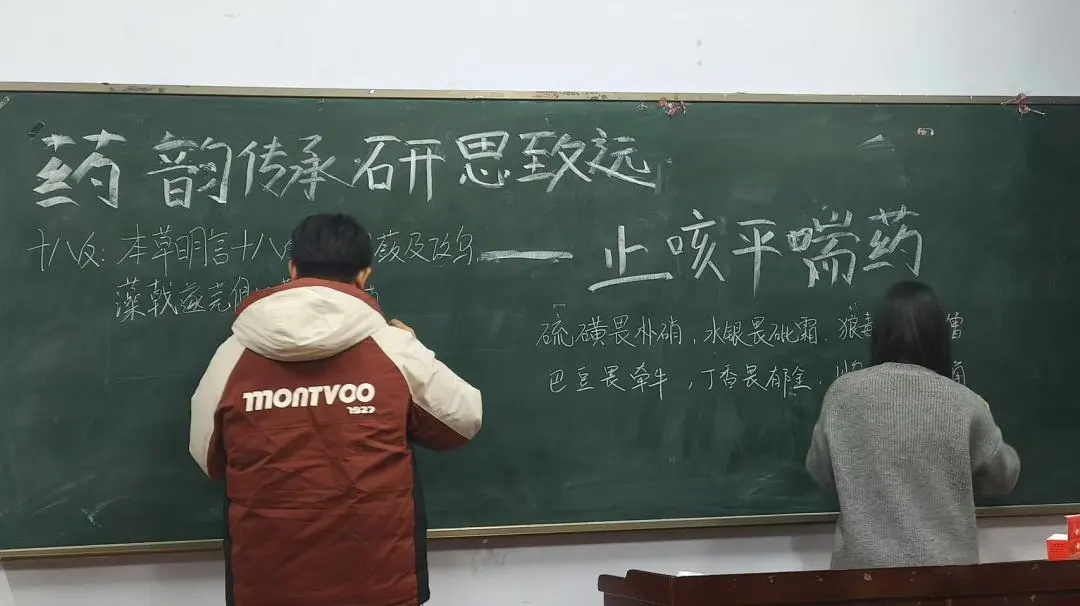 药韵传承·研思致远
——止咳平喘药
十八反：本草明言十八 蒌及攻乌.
藻戟遂芫俱
硫磺畏朴硝，水银畏砒霜.狼毒
巴豆畏牵牛，丁香畏郁金.
MONTVOO
1927